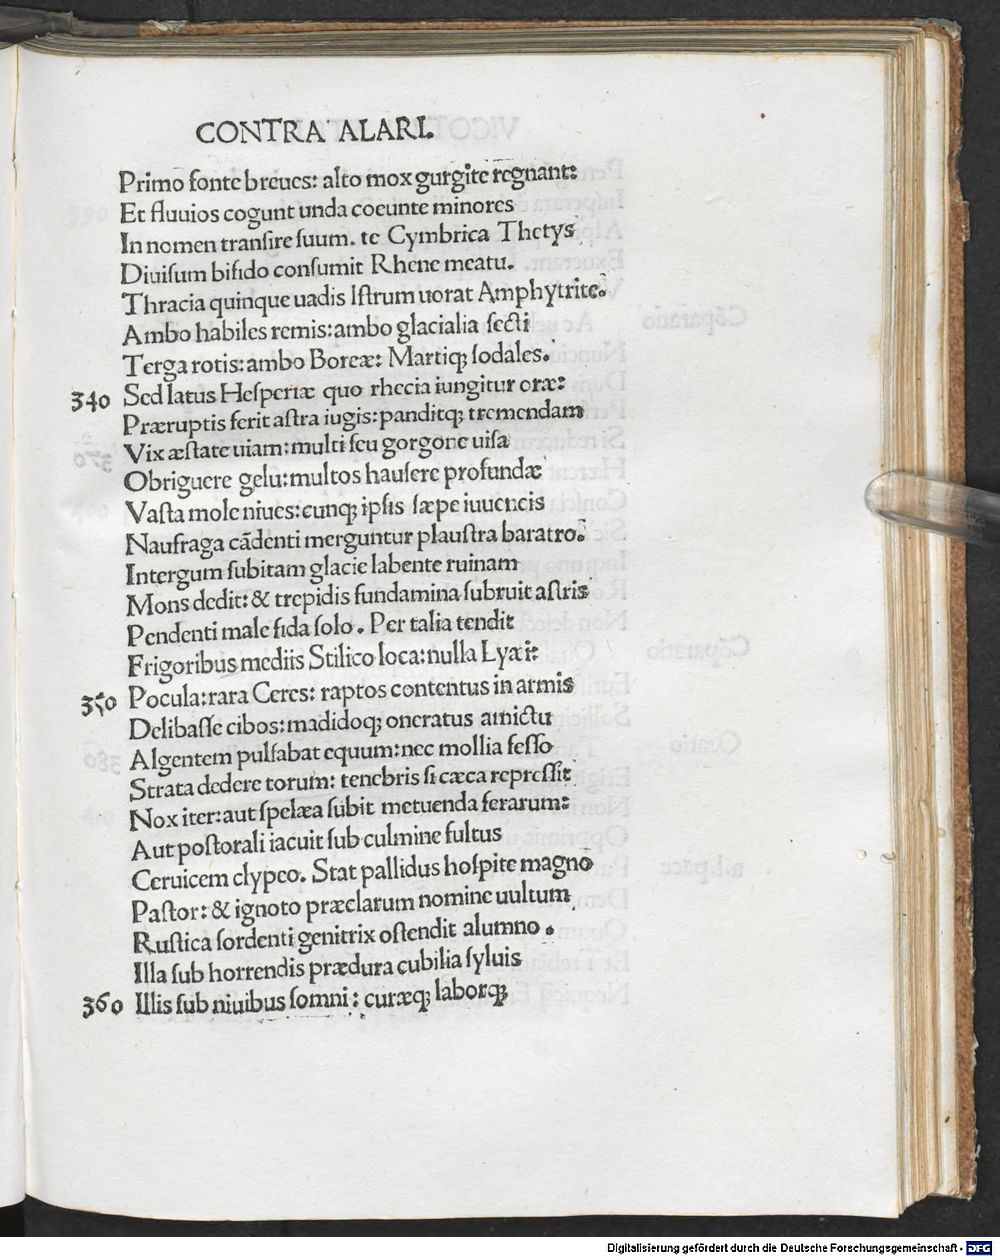 CONTRA ALARI.
Primo fonte breues: alto mox gurgite regnant:
Et fluuios cogunt unda coeunte minores
In nomen tranſire ſuum. te Cymbrica Thetys
Diuiſum bifido conſumit Rhene meatu.
Thracia quinque uadis Iſtrum uorat Amphytrite.
Ambo habiles remis: ambo glacialia ſecti
Terga rotis: ambo Boreæ: Martiq; ſodales.
340 Sed latus Heſperiæ quo rhecia iungitur oræ:
Præruptis ferit aſtra iugis: panditq; tremendam
Vix æſtate uiam: multi ſeu gorgone uiſa
Obriguere gelu: multos hauſere profundæ
Vaſta mole niues: cunq; ipſis ſæpe iuuencis
Naufraga cādenti merguntur plauſtra baratro.
Intergum ſubitam glacie labente ruinam
Mons dedit: & trepidis fundamina ſubruit aſtris
Pendenti male fida ſolo. Per talia tendit
Frigoribus mediis Stilico loca: nulla Lyæi:
350 Pocula: rara Ceres: raptos contentus in armis
Delibaſſe cibos: madidoq; oneratus amictu
Algentem pulſabat equum: nec mollia feſſo
Strata dedere torum: tenebris ſi cæca repreſſit
Nox iter: aut ſpelæa ſubit metuenda ferarum:
Aut poſtorali iacuit ſub culmine fultus
Ceruicem clypeo. Stat pallidus hoſpite magno
Paſtor: & ignoto præclarum nomine uultum
Ruſtica ſordenti genitrix oſtendit alumno.
Illa ſub horrendis prædura cubilia ſyluis
360 Illis ſub niuibus ſomni: curæq; laborq;
Digitalisierung gefördert durch die Deutsche Forschungsgemeinschaft - DFG